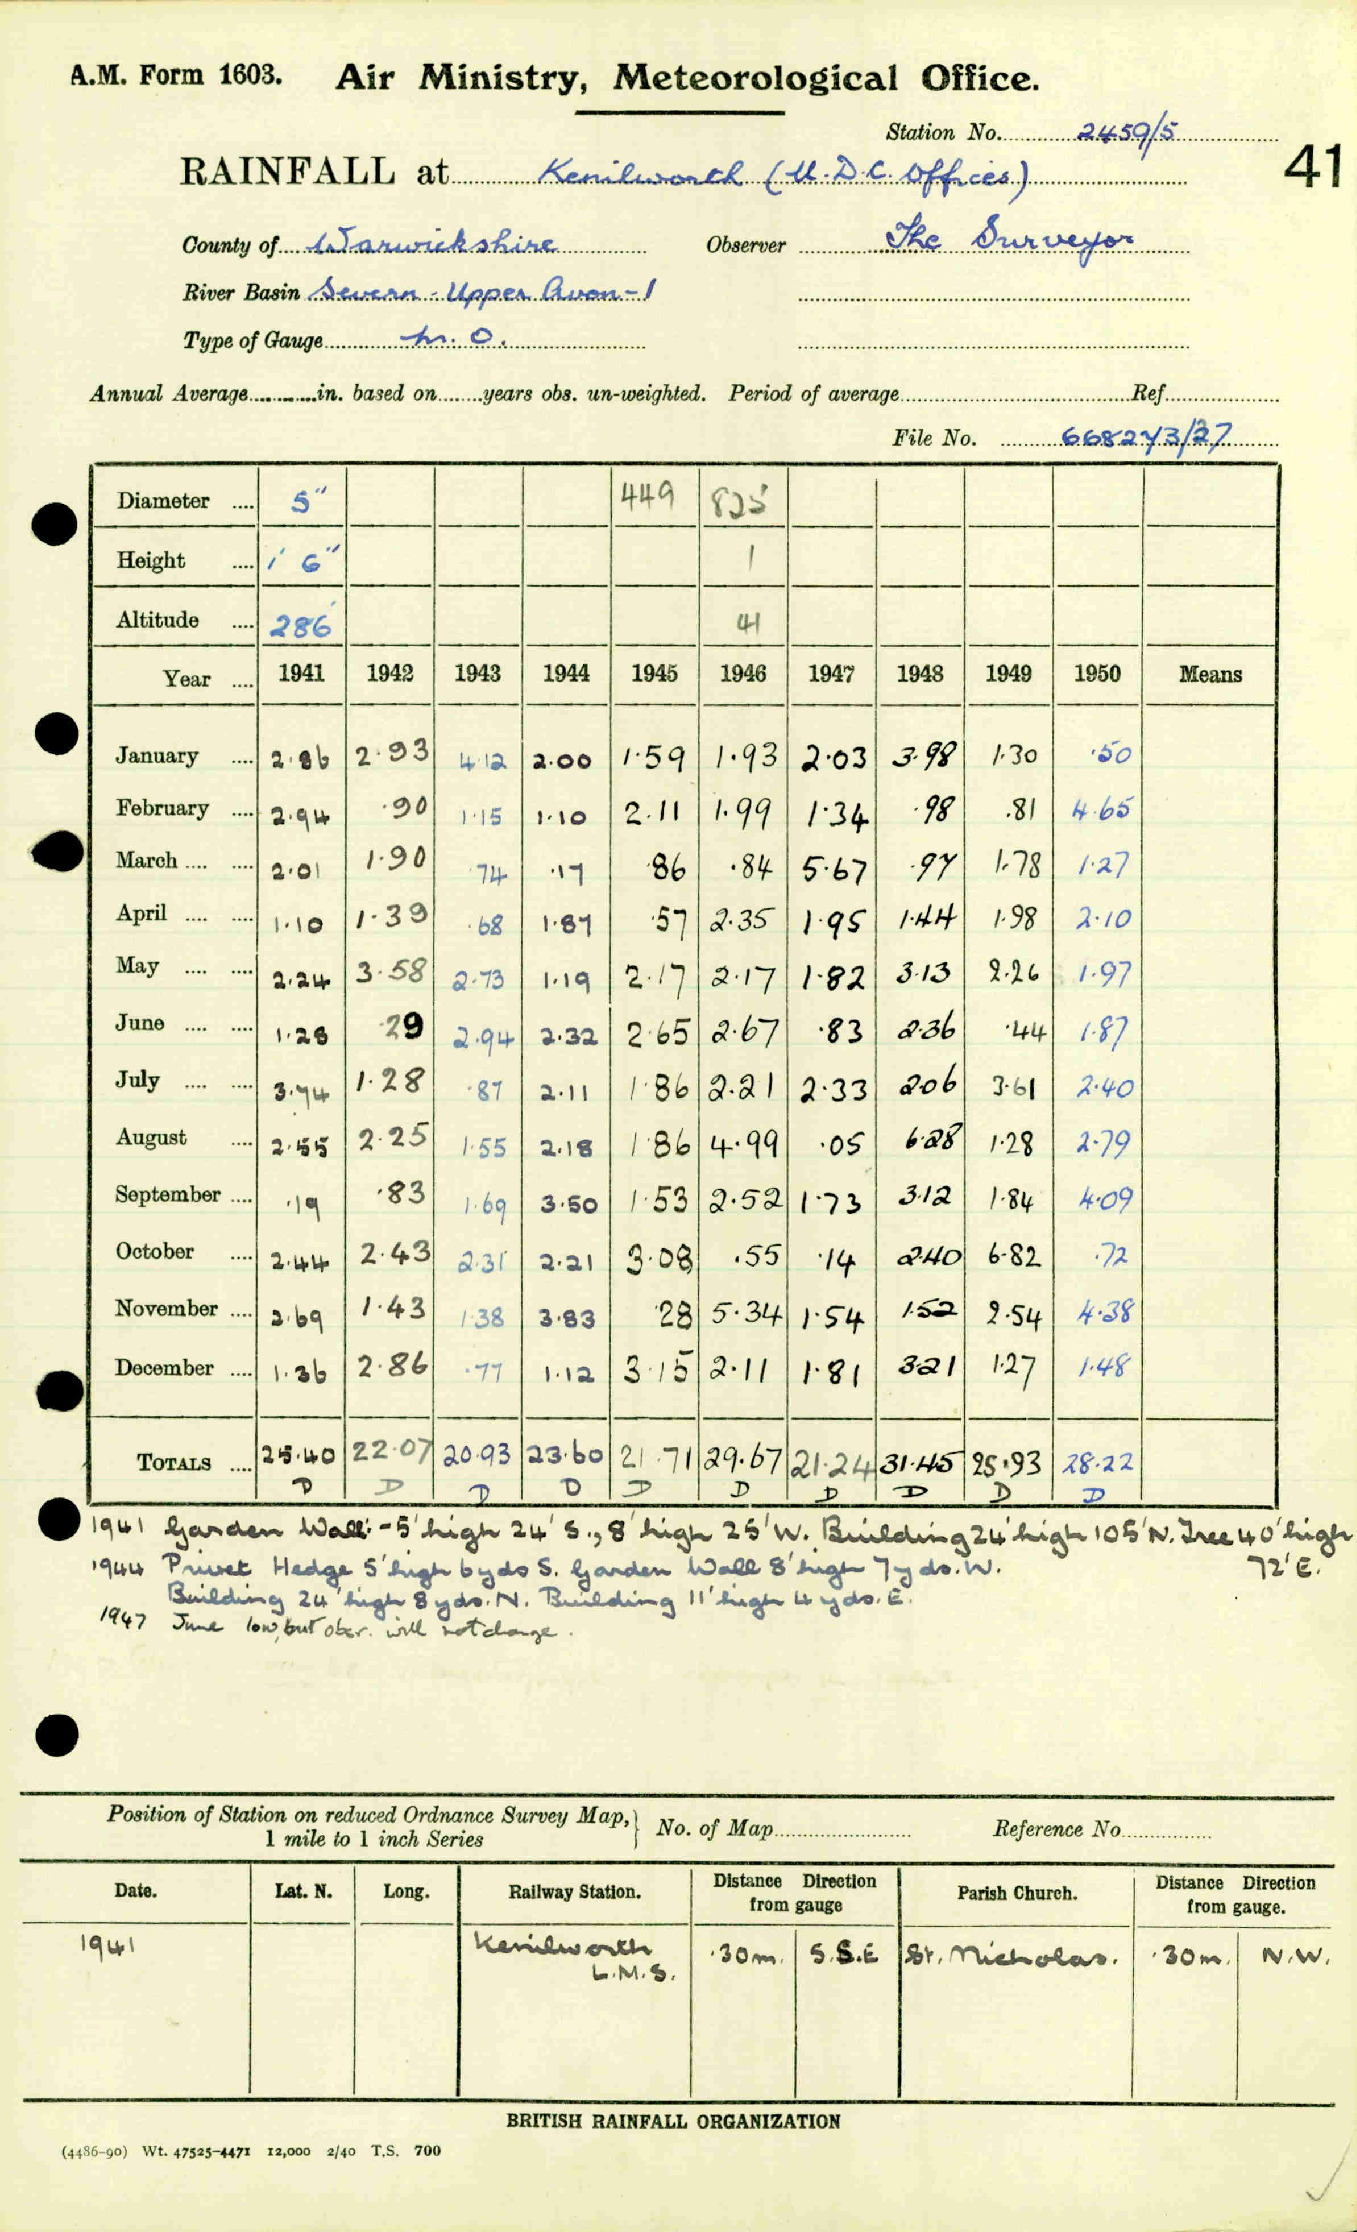 A.M. Form 1603. Air Ministry, Meteorological Office.
Station No. 2459/5
41
RAINFALL at Kenilworth (U.D.C. Offices)
County of Warwickshire Observer The Surveyor
River Basin Severn - Upper Avon - 1
Type of Gauge M.O.
Annual Average in. based on years obs. un-weighted. Period of average Ref.
File No.
Diameter .... 5" 449 825
Height .... 1' 6" 1
Altitude .... 286' 41
Year .... 1941 1942 1943 1944 1945 1946 1947 1948 1949 1950 Means
January .... 2.86 2.93 4.12 2.00 1.59 1.93 2.03 3.98 1.30 .50
February .... 2.94 .90 1.15 1.10 2.11 1.99 1.34 .98 .81 4.65
March .... .... 2.01 1.90 .74 .17 .86 .84 5.67 .97 1.78 1.27
April .... .... 1.10 1.39 .68 1.87 .57 2.35 1.95 1.44 1.98 2.10
May .... .... 2.24 3.58 2.73 1.19 2.17 2.17 1.82 3.13 2.26 1.97
June .... .... 1.28 .29 2.94 2.32 2.65 2.67 .83 2.36 .44 1.87
July .... .... 3.74 1.28 .87 2.11 1.86 2.21 2.33 2.06 3.61 2.40
August .... 2.55 2.25 1.55 2.18 1.86 4.99 .05 6.28 1.28 2.79
September .... .19 .83 1.69 3.50 1.53 2.52 1.73 3.12 1.84 4.09
October .... 2.44 2.43 2.31 2.21 3.08 .55 .14 2.40 6.82 .72
November .... 2.69 1.43 1.38 3.83 .28 5.34 1.54 1.52 2.54 4.38
December .... 1.36 2.86 .77 1.12 3.15 2.11 1.81 3.21 1.27 1.48
TOTALS .... 25.40 22.07 20.93 23.60 21.71 29.67 21.24 31.45 25.93 28.22
D D D D D D D D D D
1941 Garden Wall:- 5' high 24' S., 8' high 25' W. Building 24' high 105' N. Tree 40' high
72' E.
1944 Privet Hedge 5' high 6 yds S. Garden Wall 8' high 7 yds. W.
Building 24' high 8 yds. N. Building 11' high 4 yds. E.
1947 June low, but obsr. will not change.
Position of Station on reduced Ordnance Survey Map, } No. of Map Reference No.
1 mile to 1 inch Series
Date. Lat. N. Long. Railway Station. Distance Direction from gauge Parish Church. Distance Direction from gauge.
1941 Kenilworth .30m. S.S.E St. Nicholas. .30m. N.W.
L.M.S.
BRITISH RAINFALL ORGANIZATION
(4486-90) Wt. 47525-4471 12,000 2/40 T.S. 700